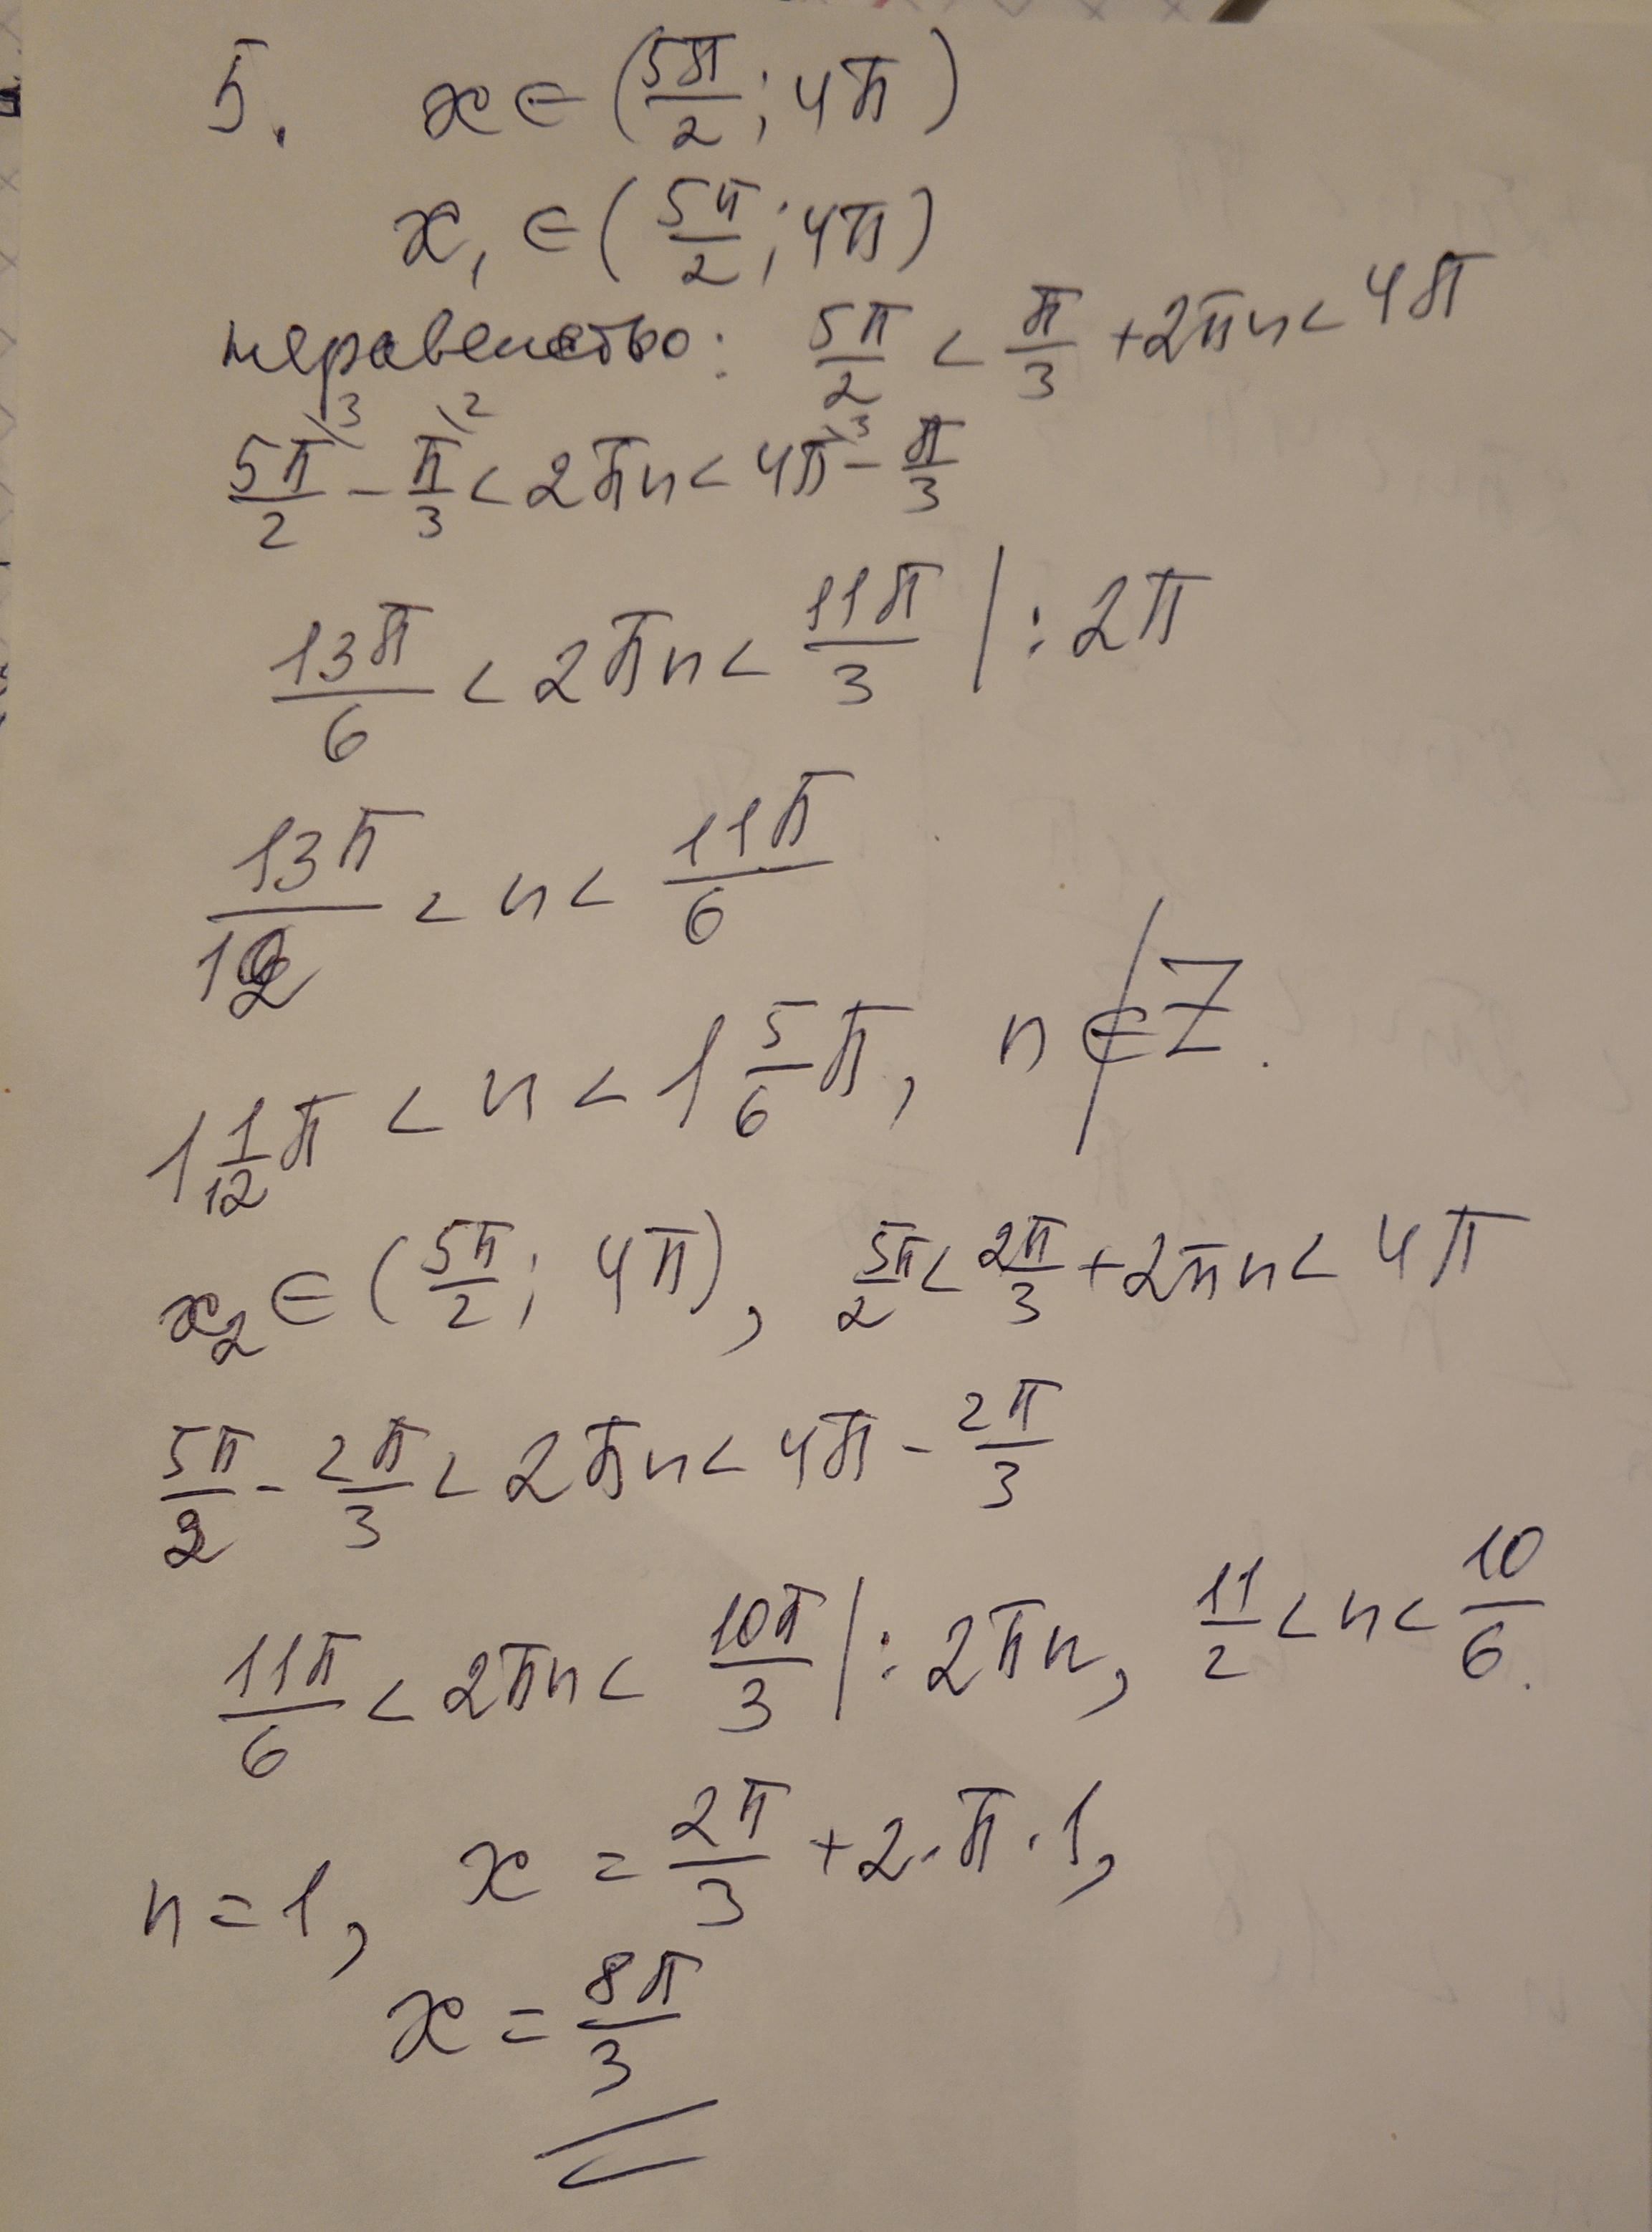 5. x ∈ (5π/2; 4π)
x₁ ∈ (5π/2; 4π)
неравенство: 5π/2 < π/3 + 2πn < 4π
5π/2 \3 - π/3 \2 < 2πn < 4π \3 - π/3
13π/6 < 2πn < 11π/3 | : 2π
13π/12 < n < 11π/6
1 1/12 π < n < 1 5/6 π, n ∉ Z.
x₂ ∈ (5π/2; 4π), 5π/2 < 2π/3 + 2πn < 4π
5π/2 - 2π/3 < 2πn < 4π - 2π/3
11π/6 < 2πn < 10π/3 | : 2πn, 11/2 < n < 10/6.
n = 1, x = 2π/3 + 2·π·1,
x = 8π/3